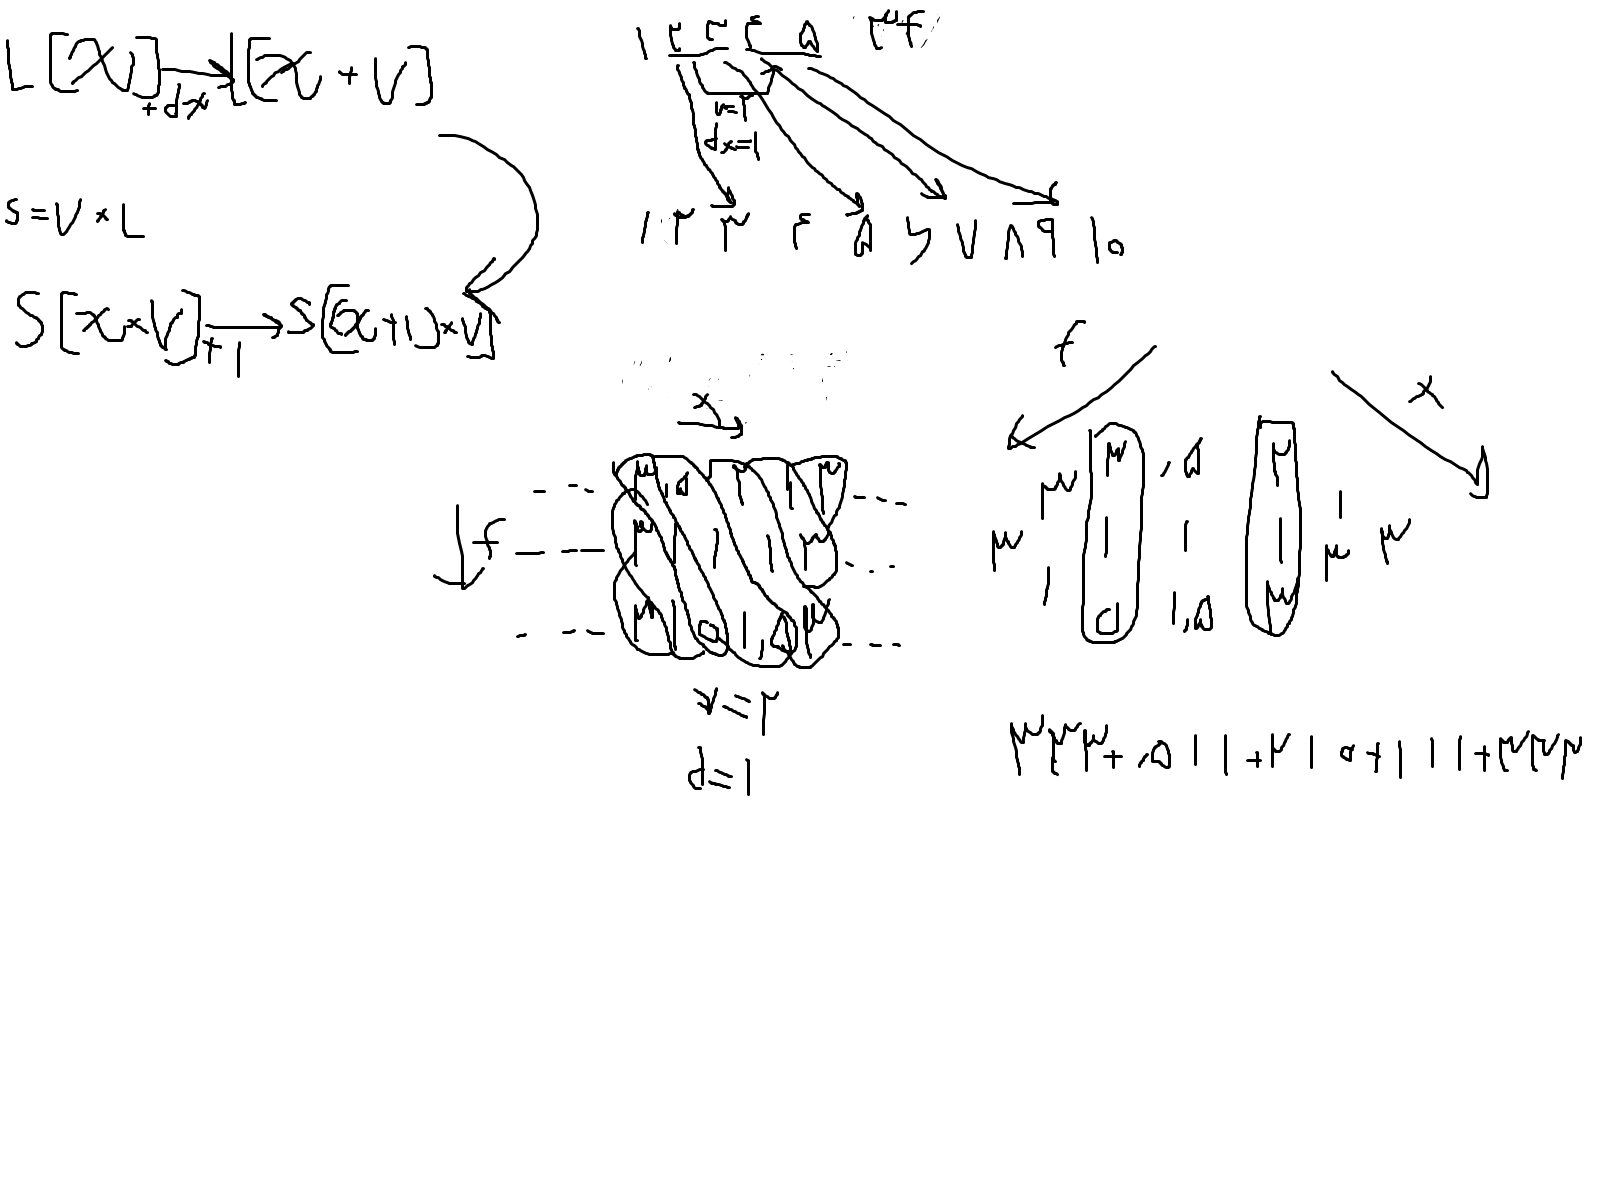 L[x] → L[x + v]
+dx
S = V × L
S[x×V] → S[(x+1)×V]
+1
۱ ۲ ۳ ۴ ۵
v=۲
dx=۱
۱ ۲ ۳ ۴ ۵ ۶ ۷ ۸ ۹ ۱۰
x
f
۳ ,۵ ۲ ۱ ۳
۳ ۱ ۱ ۱ ۳
۳ ۱ ۰ ۱,۵ ۳
v=۲
d=۱
f
x
۳ ,۵ ۲
۳ ۱
۳ ۱ ۱ ۱ ۳ ۳
۱ ۰ ۱,۵ ۳
۳۳۳+,۵۱۱+۲۱۰+۱۱۱+۳۳۳